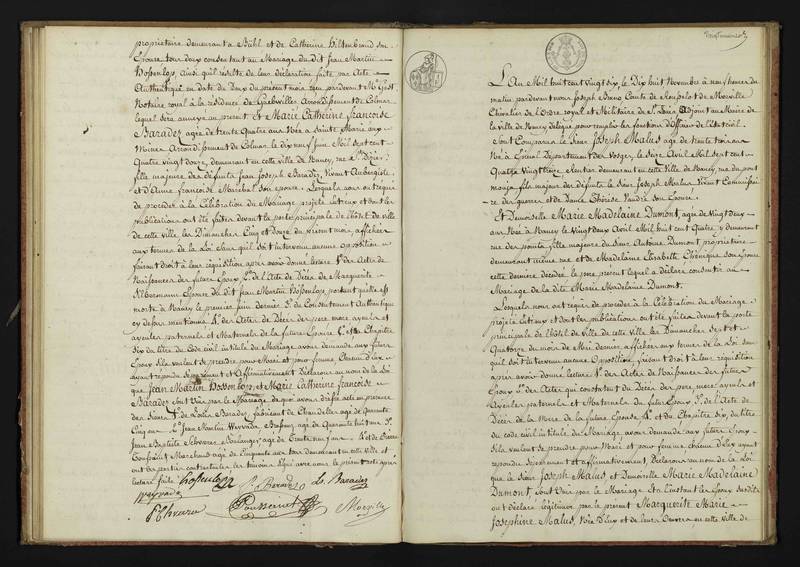 propriétaire demeurant à Bühl et de Catherine Hiltenbrand son
Epouse tous deux consentant au Mariage du dit Jean Martin
ainsi qu'il résulte de leur déclaration faite par Acte
Authentique en date du deux du présent mois reçu pardevant Me
Notaire royal à la résidence de Guebviller Arrondissement de Colmar
lequel sera annexé au présent et Marie Catherine françoise
Baradez agée de trente Quatre ans Née à Sainte Marie aux
Mines Arrondissement de Colmar le dix neuf Juin Mil sept cent
Quatre vingt douze, demeurant en cette ville de Nancy, rue St Dizier,
fille majeure des défunts Jean Joseph Baradez vivant Aubergiste
et d'Anne françoise Marchal son épouse. Lesquels nous ont requis
de procéder à la Célébration du Mariage projeté entr'eux et dont les
publications ont été faites devant la porte principale de l'hôtel de ville
de cette ville les Dimanches Cinq et douze du présent mois, affichées
aux termes de la Loi sans qu'il soit intervenu aucune opposition
faisant droit à leur réquisition après avoir donné lecture 1° des Actes de
Naissances des futurs Epoux 2° de l'Acte de Décès de Marguerite
Epouse du dit Jean Martin
morte à Nancy le premier Juin dernier 3° du Consentement Authentique
cy dessus mentionné 4° des Actes de Décès des père mère ayeuls et
ayeules paternels et Maternels de la future Epouse et du Chapitre
Six du titre du Code civil intitulé du Mariage avons demandé aux futurs
Epoux s'ils veulent se prendre pour Mari et pour femme chacun d'eux
ayant répondu séparément et affirmativement Déclarons au nom de la Loi
que Jean Martin et Marie Catherine françoise
Baradez sont unis par le Mariage de quoi avons dressé acte en présence
des Sieurs 1° de Louis Baradez, fabricant de Chandelles agé de quarante
Cinq ans 2° Jean Martin Weyvada Brasseur agé de Quarante huit ans 3°
Jean Baptiste Boulanger agé de trente neuf ans 4° et de Pierre
Toussaint Marchand agé de Cinquante ans tous demeurant en cette ville et
ont les parties contractantes les témoins signé avec nous le présent acte après
lecture faite
Weyvada
L. Baradez
Toussaint
Morville
L'An Mil huit cent vingt six, le Dix huit Novembre à neuf heures du
matin, pardevant nous Joseph Comte de et de Morville
Chevalier de l'ordre royal et Militaire de St Louis Adjoint au Maire de
la ville de Nancy délégué pour remplir les fonctions d'officier de l'état civil.
Sont Comparus le Sieur Joseph Malus agé de trente trois ans
Né à Epinal Département des Vosges, le seize Avril Mil sept cent
Quatre vingt treize, demeurant en cette ville de Nancy rue du pont
mouja fils majeur des défunts le Sieur Joseph Malus vivant Commissaire
des guerres et de Dame Thérèse son Epouse.
Et Demoiselle Marie Madelaine Dumont, agée de Vingt deux
ans Née à Nancy le Vingt deux Avril Mil huit cent Quatre y demeurant
rue des ponts, fille majeure du Sieur Antoine Dumont propriétaire
demeurant même rue et de Madelaine Elisabeth son Epouse
cette dernière décédée, le père présent lequel a déclaré consentir au
Mariage de la dite Marie Madelaine Dumont.
Lesquels nous ont requis de procéder à la Célébration du Mariage
projeté entr'eux et dont les publications ont été faites devant la porte
principale de l'hôtel de Ville de cette ville les Dimanches sept et
Quatorze du mois de Mai dernier affichées aux termes de la Loi sans
qu'il soit intervenu aucune Opposition, faisant droit à leur réquisition
après avoir donné lecture 1° des Actes de Naissances des futurs
Epoux 2° des Actes qui constatent du Décès des père mère ayeuls et
Ayeules paternels et Maternels du futur Epoux 3° de l'Acte de
Décès de la Mère de la future Epouse 4° et du Chapitre six, du titre
du code civil intitulé du Mariage avons demandé aux futurs Epoux
s'ils veulent se prendre pour Mari et pour femme chacun d'eux ayant
répondu séparément et affirmativement, Déclarons au nom de la Loi
que le Sieur Joseph Malus et Demoiselle Marie Madelaine
Dumont, sont unis par le Mariage. Et à l'instant les Epoux susdits
ont déclaré légitimer par le présent Marguerite Marie
Josephine Malus, Née d'Eux et de leurs Oeuvres en cette ville de